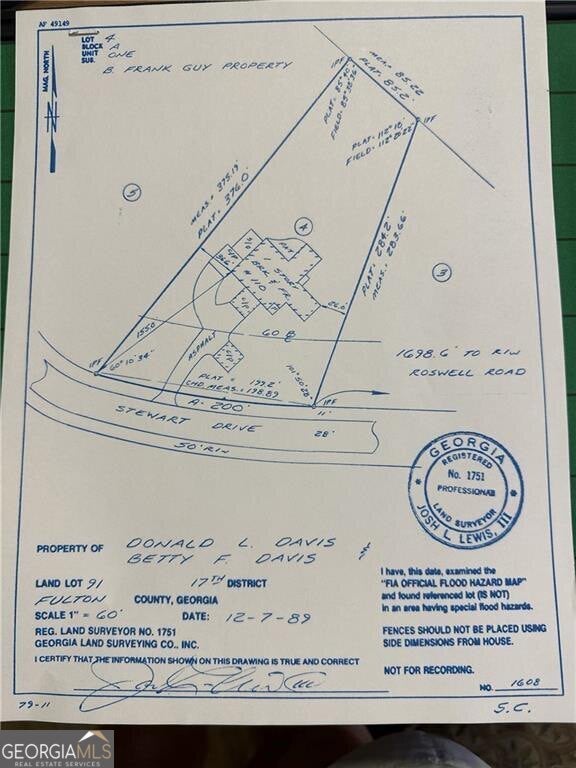 AF 49149
LOT 4
BLOCK A
UNIT ONE
SUB.
B. FRANK GUY PROPERTY
MAG. NORTH
IPF
MEAS. 85.22
PLAT = 85.2'
PLAT = 85°40'
FIELD = 85°38'36"
IPF
PLAT = 112°18'
FIELD = 112°20'22"
5
MEAS. = 375.19'
PLAT = 376.0'
4
3
PLAT = 284.2'
MEAS. = 283.66'
PAT
1 STORY
BRK & FR.
# 110
26.0'
155.0'
60 B
ASPHALT
IPF
60°10'34"
101°50'28"
1698.6' TO R/W
ROSWELL ROAD
PLAT = 199.2'
CHD. MEAS. = 198.89
A = 200'
IPF
11'
STEWART DRIVE
28'
50' R/W
GEORGIA
REGISTERED
No. 1751
PROFESSIONAL
LAND SURVEYOR
JOSH L. LEWIS, III
PROPERTY OF DONALD L. DAVIS
BETTY F. DAVIS
LAND LOT 91 17TH DISTRICT
FULTON COUNTY, GEORGIA
SCALE 1" = 60' DATE: 12-7-89
REG. LAND SURVEYOR NO. 1751
GEORGIA LAND SURVEYING CO., INC.
I CERTIFY THAT THE INFORMATION SHOWN ON THIS DRAWING IS TRUE AND CORRECT
I have, this date, examined the
"FIA OFFICIAL FLOOD HAZARD MAP"
and found referenced lot (IS NOT)
in an area having special flood hazards.
FENCES SHOULD NOT BE PLACED USING
SIDE DIMENSIONS FROM HOUSE.
NOT FOR RECORDING.
NO. 1608
79-11
S.C.
GEORGIAMLS
REAL ESTATE SERVICES